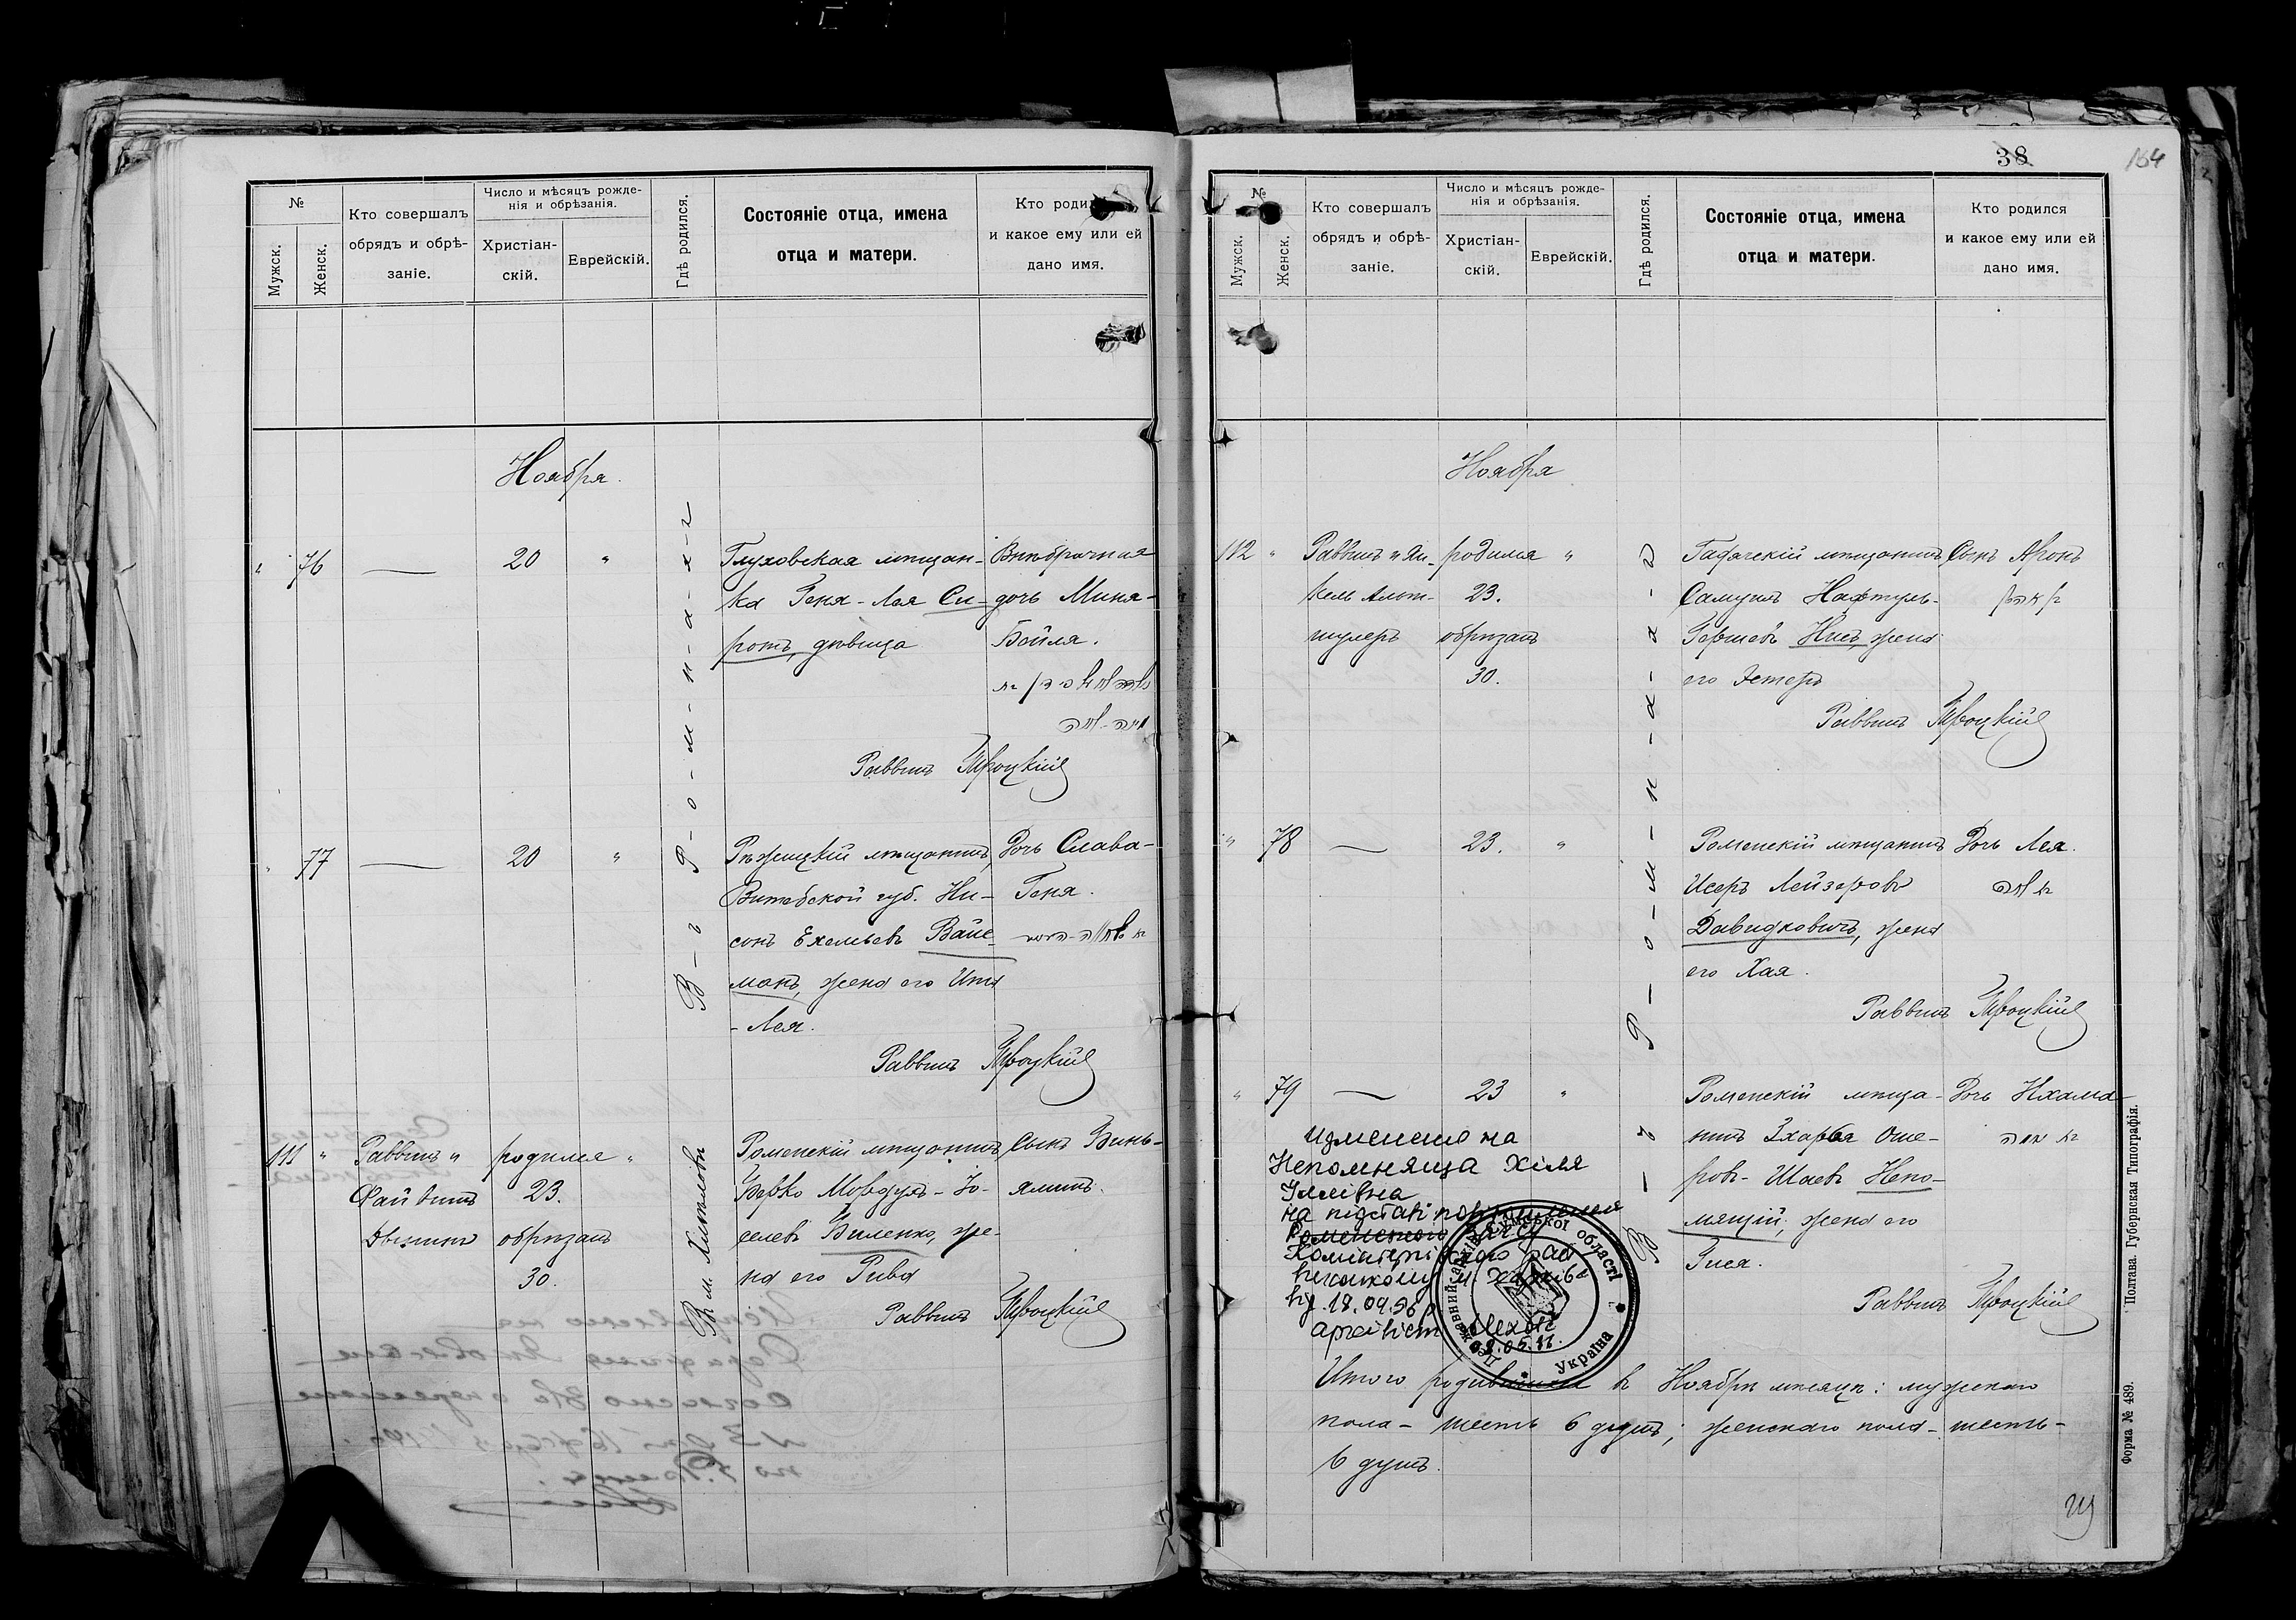 №
Мужск.
Женск.
Кто совершалъ
обрядъ и обрѣ-
заніе.
Число и мѣсяцъ рожде-
нія и обрѣзанія.
Христіан-
скій.
Еврейскій.
Гдѣ родился.
Состояніе отца, имена
отца и матери.
и какое ему или ей
дано имя.
Ноября.
" 76 — 20 "
Глуховская мѣщан-
ка Геня-Лея Си-
ротъ, дѣвица
Внѣбрачная
дочь Миня-
Бейля.
Раввинъ Троцкій
" 77 — 20 "
Рѣжицкій мѣщанинъ,
Витебской губ. Ни-
сонъ Ехельевъ Вайс-
манъ, жена его Ита
-Лея.
Дочь Слава-
Геня.
Раввинъ Троцкій
В-ъ Р-о-м-н-а-х-ъ
111 " Раввинъ "
родился "
23.
обрѣзанъ
30.
Въ м. Хмѣловѣ
Роменскій мѣщанинъ
Берко Мордухъ-Іо-
селевъ Биленко, же-
на его Рива
Сынъ Винь-
яминъ.
Раввинъ Троцкій
38
164
№
Мужск.
Женск.
Кто совершалъ
обрядъ и обрѣ-
заніе.
Число и мѣсяцъ рожде-
нія и обрѣзанія.
Христіан-
скій.
Еврейскій.
Гдѣ родился.
Состояніе отца, имена
отца и матери.
Кто родился
и какое ему или ей
дано имя.
Ноября
112 " Раввинъ и Ян-
кель Альт-
шулеръ
родился "
23.
обрѣзанъ
30.
Гадячскій мѣщанинъ
Самуилъ Нафтуль-
Гершевъ Нисъ, жена
его Эстеръ
Сынъ Аронъ
Раввинъ Троцкій
" 78 — 23. "
Роменскій мѣщанинъ
Исеръ Лейзеровъ
Давидковичъ, жена
его Хая.
Дочь Лея.
לאה
Раввинъ Троцкій
В-ъ Р-о-м-н-а-х-ъ
" 79 — 23 "
Роменскій мѣща-
нинъ Зхарья Оше-
ровъ-Шаевъ Непо-
мящій, жена его
Гися.
Дочь Нхама
Раввинъ Троцкій
Изменено на
Непомняща Хіля
Іллівна
на підставі
м. Харкова
від 18.09.96
архівіст
08.05.11.
області
Україна
Итого родившихся въ Ноябрѣ мѣсяцѣ: мужского
пола - шесть 6 душъ; женскаго пола - шесть -
6 душъ.
Полтава. Губернская Типографія.
Форма № 489.